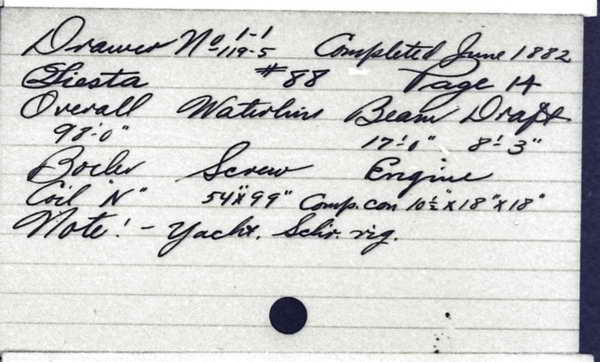 Drawer No 1-1 119-5 Completed June 1882
Siesta #88 Page 14
Overall Waterline Beam Draft
98'-0" 17'-0" 8'-3"
Boiler Screw Engine
Coil "N" 54"x99" Comp. con 10½"x18"x18"
Note! - Yacht. Schr. rig.